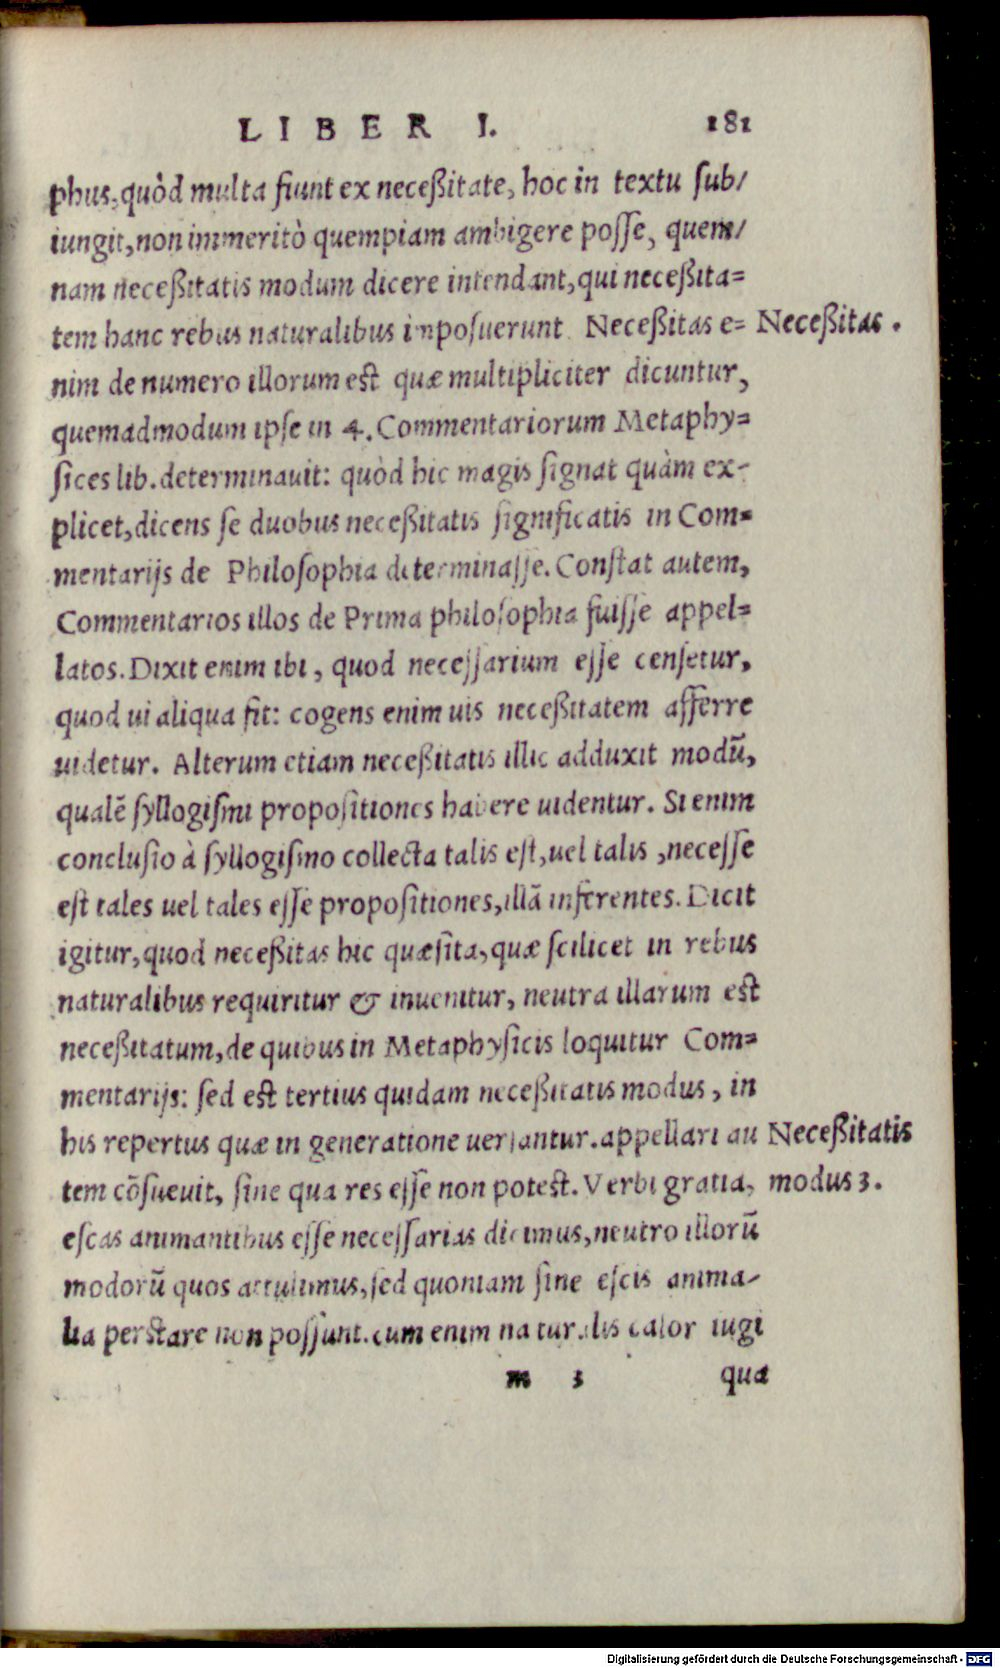 LIBER I. 181
phus, quòd multa fiunt ex neceßitate, hoc in textu sub/
iungit, non immeritò quempiam ambigere posse, quem/
nam neceßitatis modum dicere intendant, qui neceßita=
tem hanc rebus naturalibus imposuerunt Neceßitas e= Neceßitas.
nim de numero illorum est quæ multipliciter dicuntur,
quemadmodum ipse in 4. Commentariorum Metaphy=
sices lib. determinauit: quòd hic magis signat quàm ex-
plicet, dicens se duobus neceßitatis significatis in Com=
mentarijs de Philosophia determinasse. Constat autem,
Commentarios illos de Prima philosophia fuisse appel=
latos. Dixit enim ibi, quod necessarium esse censetur,
quod ui aliqua fit: cogens enim uis neceßitatem afferre
uidetur. Alterum etiam neceßitatis illic adduxit modū,
qualē syllogismi propositiones habere uidentur. Si enim
conclusio à syllogismo collecta talis est, uel talis, necesse
est tales uel tales esse propositiones, illā inferentes. Dicit
igitur, quod neceßitas hic quæsita, quæ scilicet in rebus
naturalibus requiritur & inuenitur, neutra illarum est
neceßitatum, de quibus in Metaphysicis loquitur Com=
mentarijs: sed est tertius quidam neceßitatis modus, in
his repertus quæ in generatione uersantur. appellari au Neceßitatis
tem cōsueuit, sine qua res esse non potest. Verbi gratia, modus 3.
escas animantibus esse necessarias dicimus, neutro illorū
modorū quos attulimus, sed quoniam sine escis anima-
lia perstare non possunt. cum enim naturalis calor iugi
m 3 qua
Digitalisierung gefördert durch die Deutsche Forschungsgemeinschaft - DFG